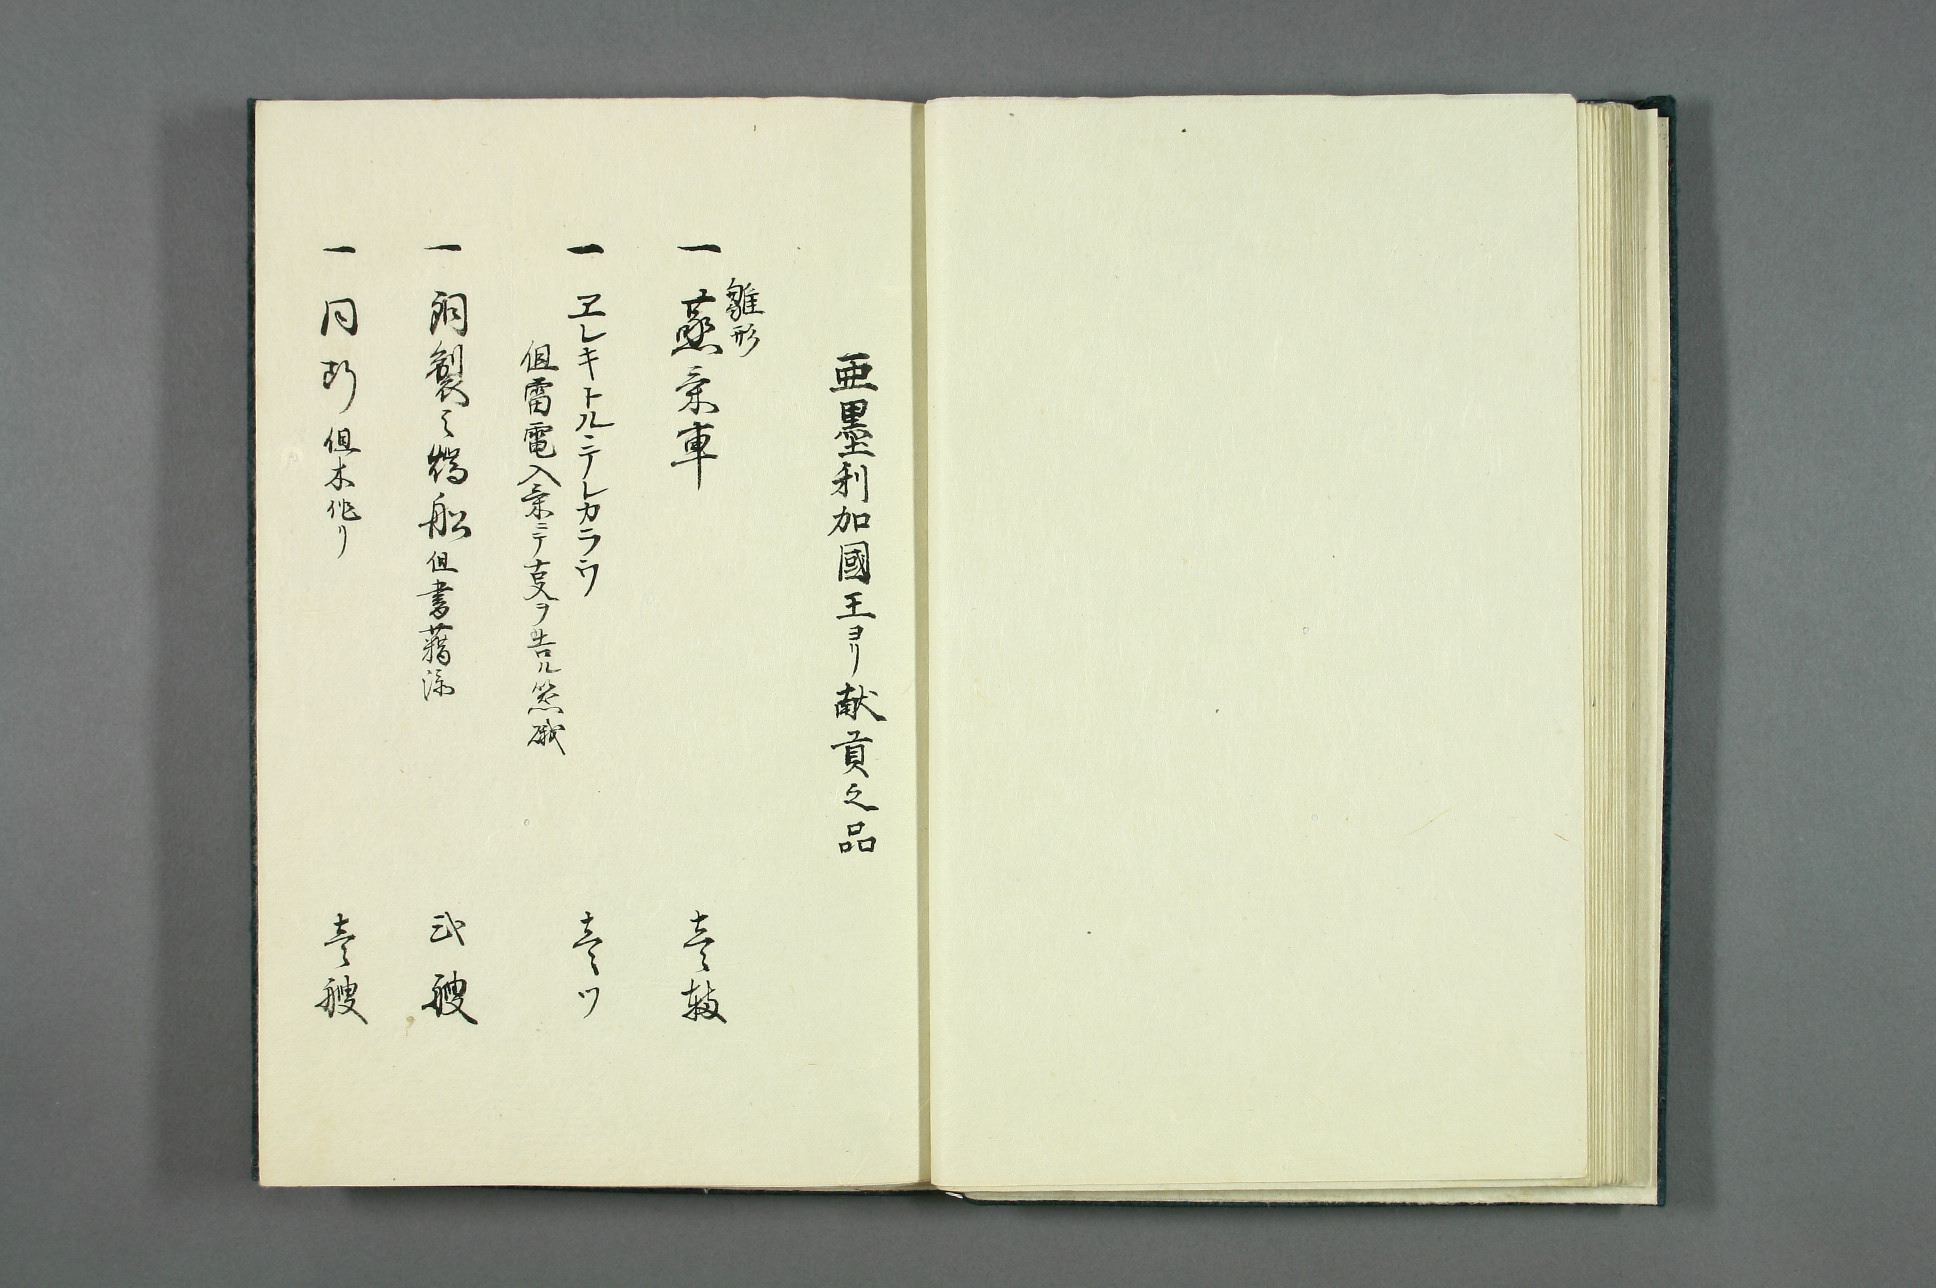 亜墨利加國王ヨリ献貢之品
雛形
一 蒸氣車 壱輌
一 ヱレキトルニテレカラウ 壱ツ
但雷電入氣ニテ叓ヲ告ル器械
一 銅製之橋船 但書藉添 弐艘
一 同断 但木作リ 壱艘